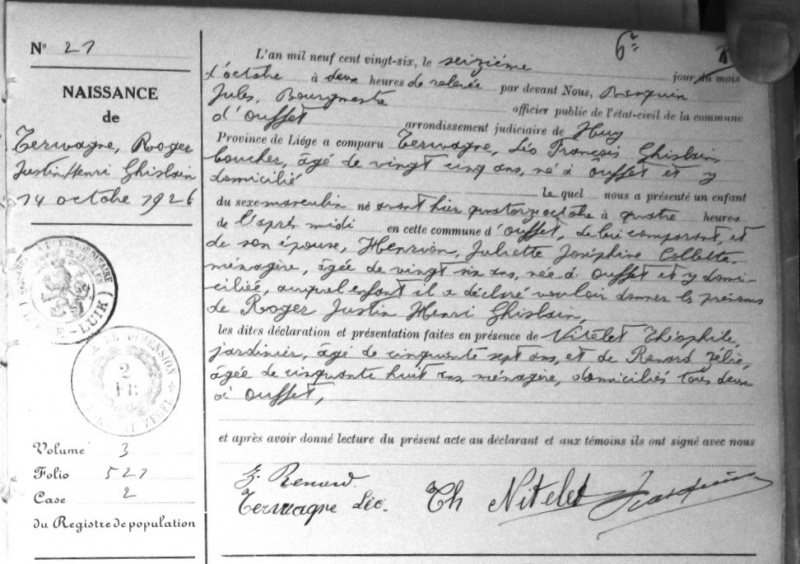 N° 21
NAISSANCE
de
Terwagne, Roger
Justin Henri Ghislain
14 octobre 1926
Volume 3
Folio 521
Case 2
du Registre de population
L'an mil neuf cent vingt-six, le seizième jour du mois
d'octobre à deux heures de relevée par devant Nous,
Jules, Bourgmestre officier public de l'état-civil de la commune
d'Ouffet arrondissement judiciaire de Huy
Province de Liége a comparu Terwagne, Léo François Ghislain,
boucher, âgé de vingt cinq ans, né à Ouffet et y
domicilié le quel nous a présenté un enfant
du sexe masculin né avant hier quatorze octobre à quatre heures
de l'après midi en cette commune d'Ouffet, de lui comparant, et
de son épouse, Henrion, Juliette Joséphine Collette,
ménagère, âgée de vingt six ans, née à Ouffet et y domi-
ciliée, auquel enfant il a déclaré vouloir donner les prénoms
de Roger Justin Henri Ghislain,
les dites déclaration et présentation faites en présence de Nitelet Théophile,
jardinier, âgé de cinquante sept ans, et de Renard Zélie,
âgée de cinquante huit ans, ménagère, domiciliés tous deux
à Ouffet,
et après avoir donné lecture du présent acte au déclarant et aux témoins ils ont signé avec nous
Z. Renard
Terwagne Léo. Th Nitelet
2
FR